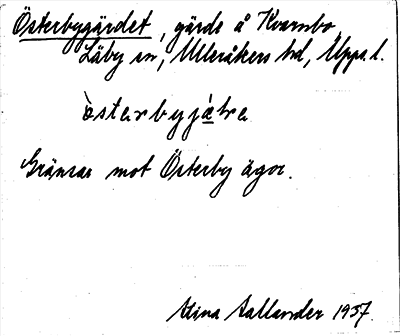 Österbygärdet, gärde å Kvarnbo
Läby sn, Ulleråkers hd, Upps. l.
òsterbyjä̀ṭra
Gränsar mot Österby ägor.
Stina Sallander 1937.